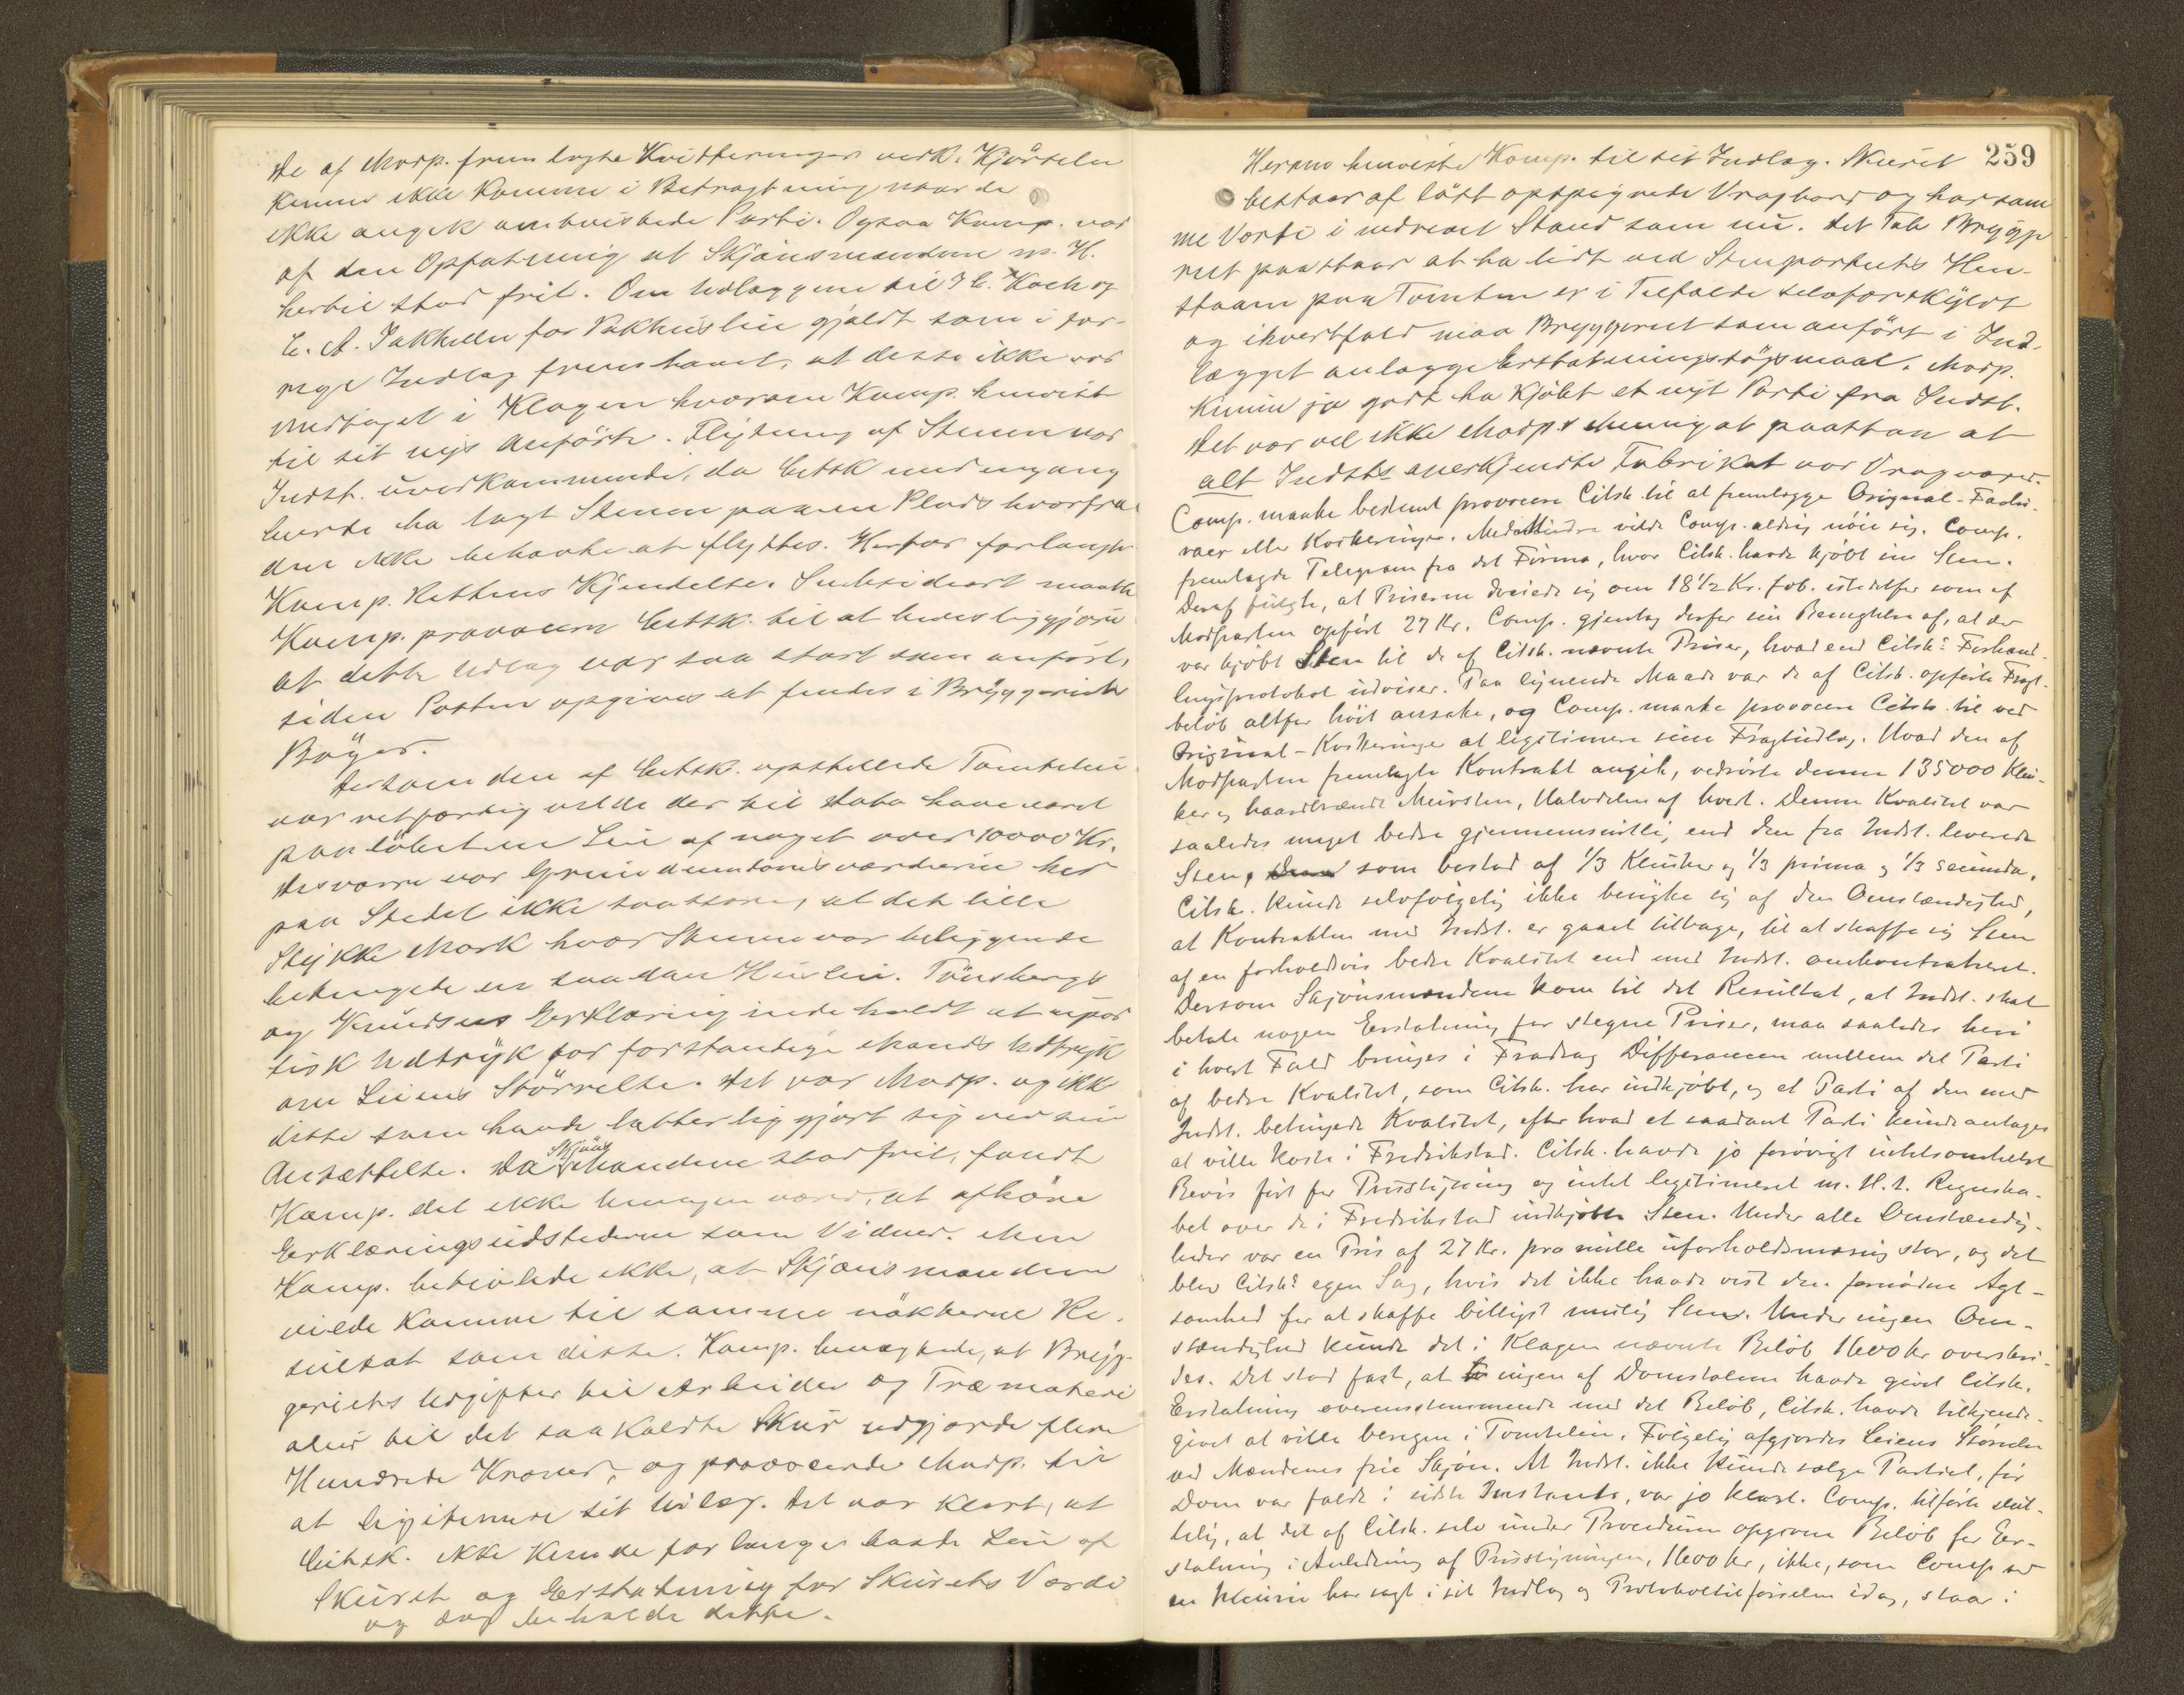 De af Modp. fremlagte Kvitteringer vedk. Kjörselen
kunne ikke komme i Betragtning naar de
ikke angik omtvistede Parti. Ogsaa Komp. var
af den Opfatning at Skjönsmændene m. H.
hertil stod frit. Om Udlæggene til I C. Koch og
C. A. Jakhelln for Pakhusleie gjaldt som i for-
rige Indlæg fremhævet, at disse ikke var
medtaget i Klagen hvorom Komp. henviste
til sit nys anförte. Flytning af Stenen var
Indst. uvedkommende, da Citsk med engang
burde ha lagt Stenen paa en Plads hvorfra
den ikke behövte at flyttes. Herfor forlangte
Komp. Rettens Kjendelse. Subsidiært maatte
Komp. provocere Citsk. til at beviisliggjöre
at dette Udlæg var saa stort som anfört,
siden Posten opgives at findes i Bryggeriets
Böger.
Dersom den af Citsk. opstillede Tomteleie
var retfærdig vilde der til Dato have været
paalöbet en Leie af noget over 10000 Kr.
Desværre var Grundeiendomsværdierne her
paa Stedet ikke saa store, at det lille
Stykke Mark hvor Stenene var beliggende
betingede en saadan Husleie. Tönsbergs
og Knudsens Erklæring indeholdt et upar
tisk Udtryk for forstandige Mænds Udtryk
om Leiens Störrelse. Det var Modp. og ikke
disse som havde latterliggjort sig ved sin
Ansættelse. Da Skjöns Mændene stod frit, fandt
Komp. det ikke umagen værd, at afhöre
Erklæringsudstederne som Vidner. Men
Komp. betvivlede ikke, at Skjönsmændene
vilde komme til samme nökterne Re-
sultat som disse. Komp. benægtede, at Brygg-
geriets Udgifter til Arbeider og Træmateri
aler til det saakaldte Skur udgjorde flere
Hundrede Kroner, og provocerede Modp. til
at legitimere sit Udlæg. Det var klart, at
Citsk. ikke kunde forlange baade Leie af
Skuret og Erstatning for Skurets Værdi
og dog beholde dette.
259
Herom henviste Komp. til sit Indlæg. Skuret
bestaar af löst opspigrede Vragbord og har sam
me Værdi i nedrevet Stand som nu. Det Tab Brygge
riet paastaar at ha lidt ved Stenpartiets Hen-
staaen paa Tomten er i Tilfælde selvforskyldt
og ihvertfald maa Bryggeriet som anfört i Ind-
lægget anlægge Erstatningssögsmaal. Modp.
kunne jo godt ha kjöbt et nyt Parti fra Indst.
Det var vel ikke Modp's Mening at paastaa at
alt Indsts anerkjendte Fabrikat var Vragvare.
Comp. maatte bestemt provocere Citsk. til at fremlægge Original-Factu-
raer eller Kvitteringer. Med Mindre vilde Comp. aldrig nöie sig. Comp.
fremlagde Telegram fra det Firma, hvor Citsk. havde kjöbt ind Sten.
Deraf fulgte, at Priserne dreiede sig om 18½ Kr. fob. istedetfor som af
Modparten opfört 27 Kr. Comp. gjentog derfor sin Benægtelse af, at der
var kjöbt Sten til de af Citsk. nævnte Priser, hvad end Citsk.s Forhand-
lingsprotokol udviser. Paa lignende Maade var de af Citsk. opförte Fragt-
belöb altfor höit ansatte, og Comp. maatte provocere Citsk. til ved
Original-Kvitteringer at legitimere sine Fragtudlæg. Hvad den af
Modparten fremlagte Kontrakt angik, vedrörte denne 135000 Klin-
ker og haardbrændt Mursten, Halvdelen af hvert. Denne Kvalitet var
saaledes meget bedre gjennemsnitlig, end den fra Indst. leverede
Sten, som bestod af 1/3 Klinker og 1/3 prima og 1/3 secunda.
Citsk. kunde selvfölgelig ikke benytte sig af den Omstændighed,
at Kontrakten med Indst. er gaaet tilbage, til at skaffe sig Sten
af en forholdsvis bedre Kvalitet end med Indst. omkontraheret.
Dersom Skjönsmændene kom til det Resultat, at Indst. skal
betale nogen Erstatning for stegne Priser, maa saaledes heri
i hvert Fald bringes i Fradrag Differancen mellem det Parti
af bedre Kvalitet, som Citsk. har indkjöbt, og et Parti af den med
Indst. betingede Kvalitet, efter hvad et saadant Parti kunde antages
at ville koste i Fredrikstad. Citsk. havde jo forövrigt intetsomhelst
Bevis fört for Prisstigning og intet legitimeret m. H. t. Regnska-
bet over de i Fredrikstad indkjöbte Sten. Under alle Omstændig-
heder var en Pris af 27 Kr. pro mille uforholdsmæssig stor, og det
blev Citsk.s egen Sag, hvis det ikke havde vist den fornödne Agt-
somhed for at skaffe billigst mulig Sten. Under ingen Om-
stændighed kunde det i Klagen nævnte Belöb 1600 kr overskri-
des. Det stod fast, at ingen af Domstolene havde givet Citsk.
Erstatning overensstemmende med det Belöb, Citsk. havde tilkjende-
givet at ville beregne i Tomteleie. Fölgelig afgjordes Leiens Störrelse
ved Mændenes frie Skjön. At Indst. ikke kunde sælge Partiet, för
Dom var faldt i sidste Instants, var jo klart. Comp. tilförte slut-
telig, at det af Citsk. selv under Proceduren opgivne Belöb for Er-
statning i Anledning af Prisstigningen, 1600 kr, ikke, som Comp ved
en Incurie har sagt i sit Indlæg og Protokoltilförselen idag, staar i